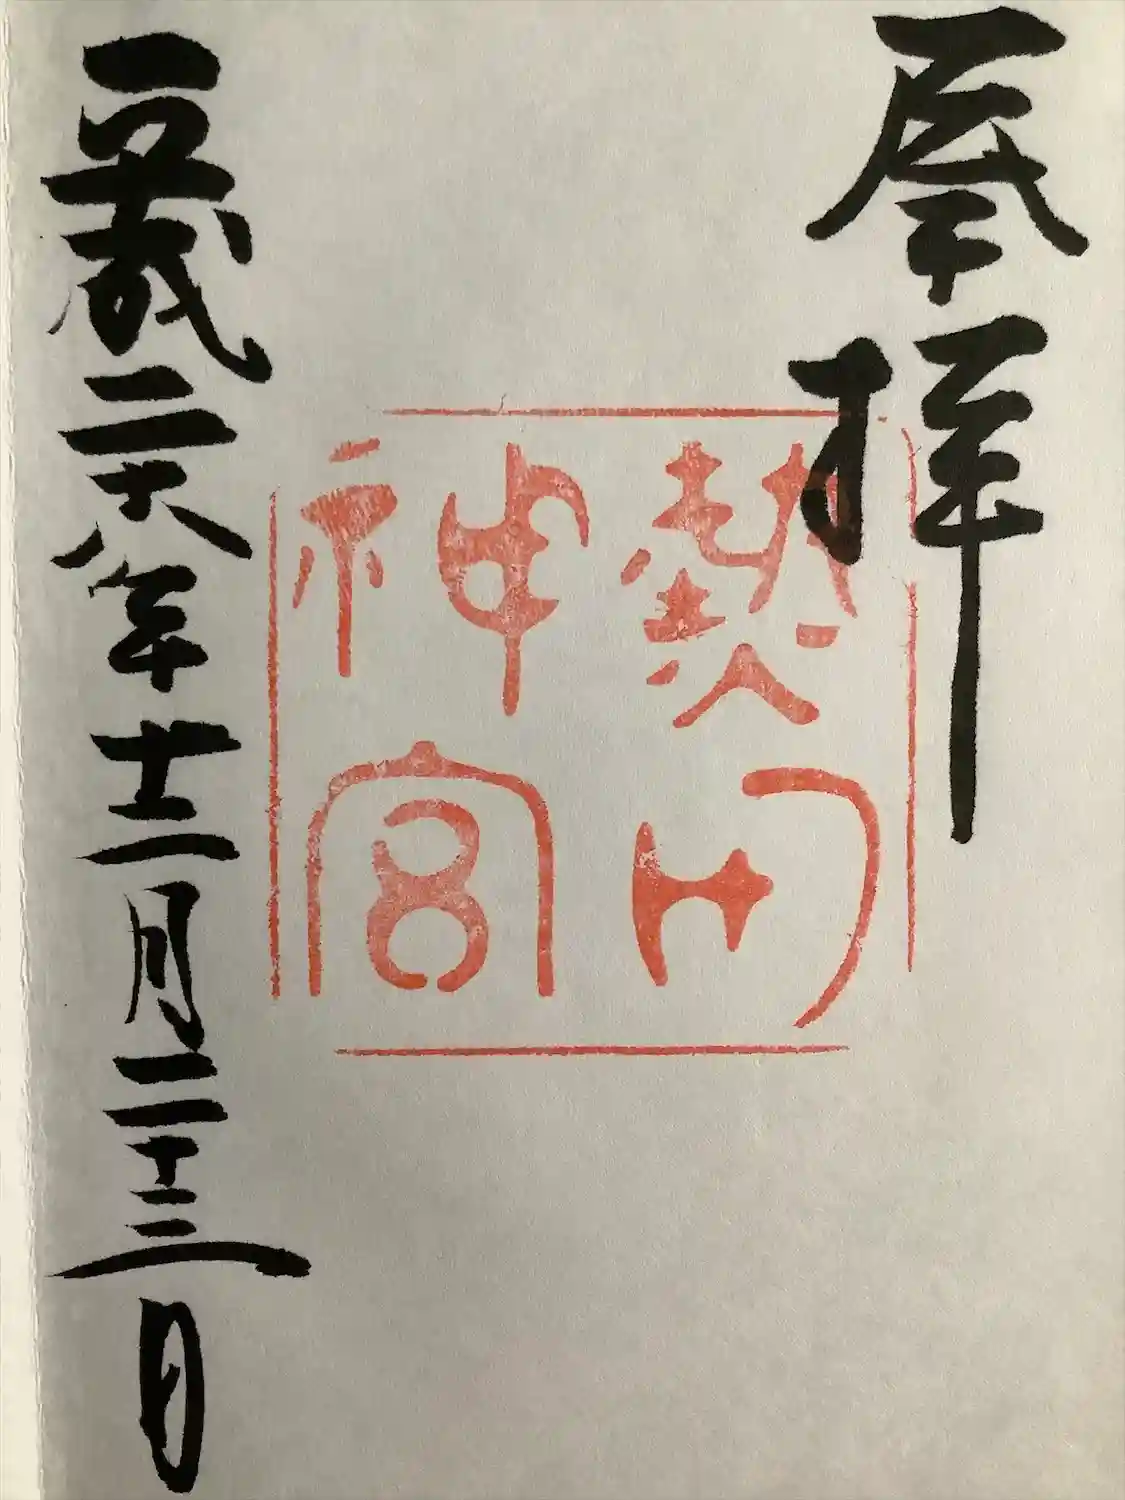 奉拝
熱田
神宮
平成二十八年十二月二十三日